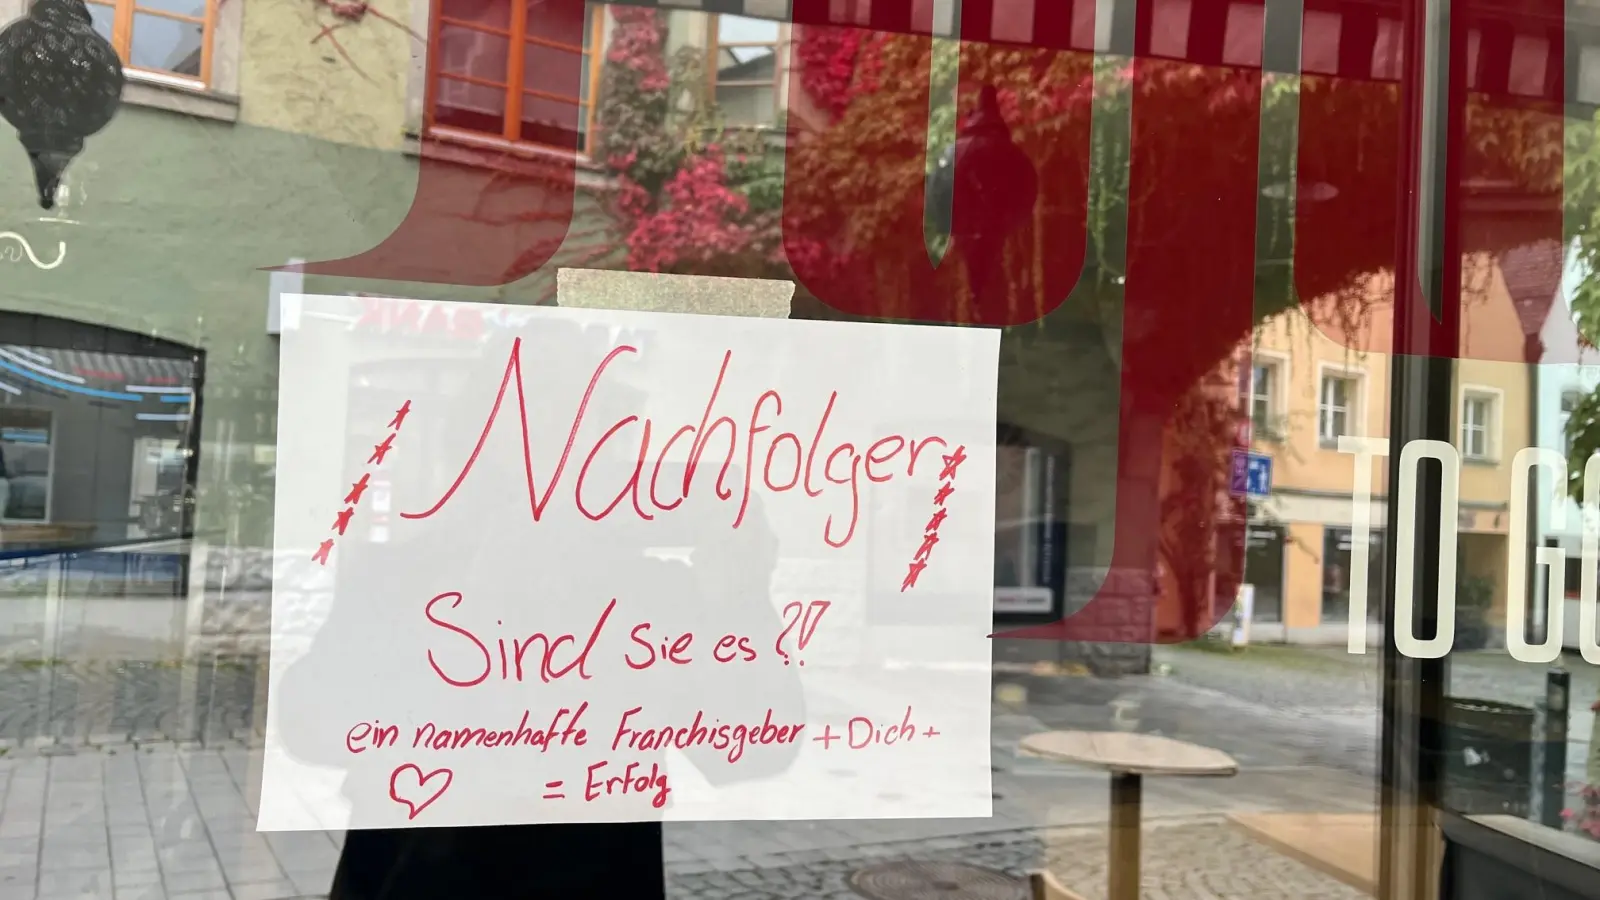 Nachfolger
Sind Sie es ?!
ein namenhafte Franchisgeber + Dich +
♡ = Erfolg
TO GO